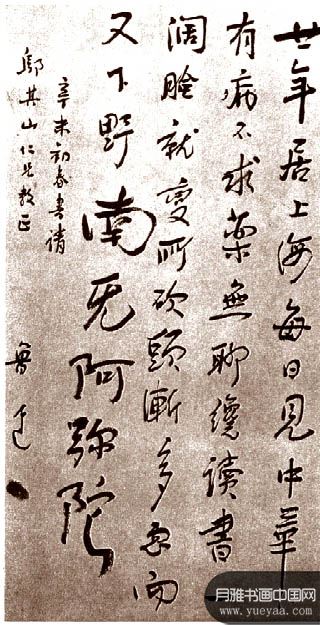 廿年居上海每日見中華
有病不求藥無聊纔讀書一
濶臉就變所砍頭漸多忽而
又下野南无阿弥陀
辛未初春書請
鄔其山仁兄教正
魯迅
月雅书画中国网
www.yueyaa.com